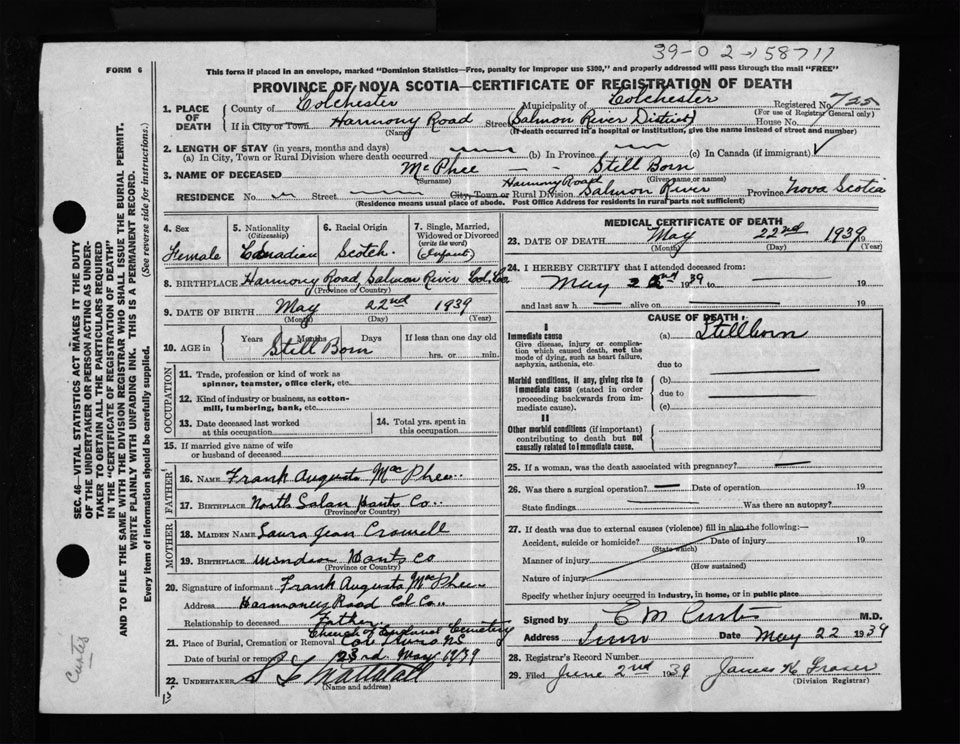 39-02-158711
FORM 6
This form if placed in an envelope, marked "Dominion Statistics—Free, penalty for improper use $300," and properly addressed will pass through the mail "FREE"
PROVINCE OF NOVA SCOTIA—CERTIFICATE OF REGISTRATION OF DEATH
1. PLACE OF DEATH
County of Colchester Municipality of Colchester Registered No. 725
(For use of Registrar General only)
If in City or Town Harmony Road (Name) Street (Salmon River District) House No.
(If death occurred in a hospital or institution, give the name instead of street and number)
2. LENGTH OF STAY (in years, months and days)
(a) In City, Town or Rural Division where death occurred (b) In Province (c) In Canada (if immigrant) ✓
3. NAME OF DECEASED McPhee — Still Born
(Surname) (Given name or names)
RESIDENCE No. Street City, Town or Rural Division Harmony Road Salmon River Province Nova Scotia
(Residence means usual place of abode. Post Office Address for residents in rural parts not sufficient)
4. Sex Female
5. Nationality (Citizenship) Canadian
6. Racial Origin Scotch
7. Single, Married, Widowed or Divorced (write the word) (Infant)
8. BIRTHPLACE Harmony Road, Salmon River Col. Co.
(Province or Country)
9. DATE OF BIRTH May 22nd 1939
(Month) (Day) (Year)
10. AGE in Years Months Days If less than one day old
Still Born hrs. or min.
OCCUPATION
11. Trade, profession or kind of work as spinner, teamster, office clerk, etc.
12. Kind of industry or business, as cotton-mill, lumbering, bank, etc.
13. Date deceased last worked at this occupation
14. Total yrs. spent in this occupation
15. If married give name of wife or husband of deceased
FATHER
16. NAME Frank Augusta MacPhee
17. BIRTHPLACE North Salem Hants Co
(Province or Country)
MOTHER
18. MAIDEN NAME Laura Jean Crowell
19. BIRTHPLACE Windsor Hants Co
(Province or Country)
20. Signature of informant Frank Augusta MacPhee
Address Harmoney Road Col Co.
Relationship to deceased Father
21. Place of Burial, Cremation or Removal Church of England Cemetery
Truro NS
Date of burial or removal 23rd May 1939
22. UNDERTAKER
(Name and address)
MEDICAL CERTIFICATE OF DEATH
23. DATE OF DEATH May 22nd 1939
(Month) (Day) (Year)
24. I HEREBY CERTIFY that I attended deceased from:
May 22nd 1939 to 19
and last saw h alive on 19
CAUSE OF DEATH
I
Immediate cause
Give disease, injury or complication which caused death, not the mode of dying, such as heart failure, asphyxia, asthenia, etc.
(a) Stillborn
due to
Morbid conditions, if any, giving rise to immediate cause (stated in order proceeding backwards from immediate cause).
(b)
due to
(c)
II
Other morbid conditions (if important) contributing to death but not causally related to immediate cause.
25. If a woman, was the death associated with pregnancy? —
26. Was there a surgical operation? — Date of operation 19
State findings Was there an autopsy?
27. If death was due to external causes (violence) fill in also the following:—
Accident, suicide or homicide? Date of injury 19
(State which)
Manner of injury
(How sustained)
Nature of injury
Specify whether injury occurred in industry, in home, or in public place
Signed by M.D.
Address Truro Date May 22 1939
28. Registrar's Record Number
29. Filed June 2nd 1939 James H Fraser
(Division Registrar)
SEC. 46—VITAL STATISTICS ACT MAKES IT THE DUTY
OF THE UNDERTAKER OR PERSON ACTING AS UNDER-
TAKER TO OBTAIN ALL THE PARTICULARS REQUIRED
IN THE "CERTIFICATE OF REGISTRATION OF DEATH"
AND TO FILE THE SAME WITH THE DIVISION REGISTRAR WHO SHALL ISSUE THE BURIAL PERMIT.
WRITE PLAINLY WITH UNFADING INK. THIS IS A PERMANENT RECORD.
Every item of information should be carefully supplied. (See reverse side for instructions.)
Curtes